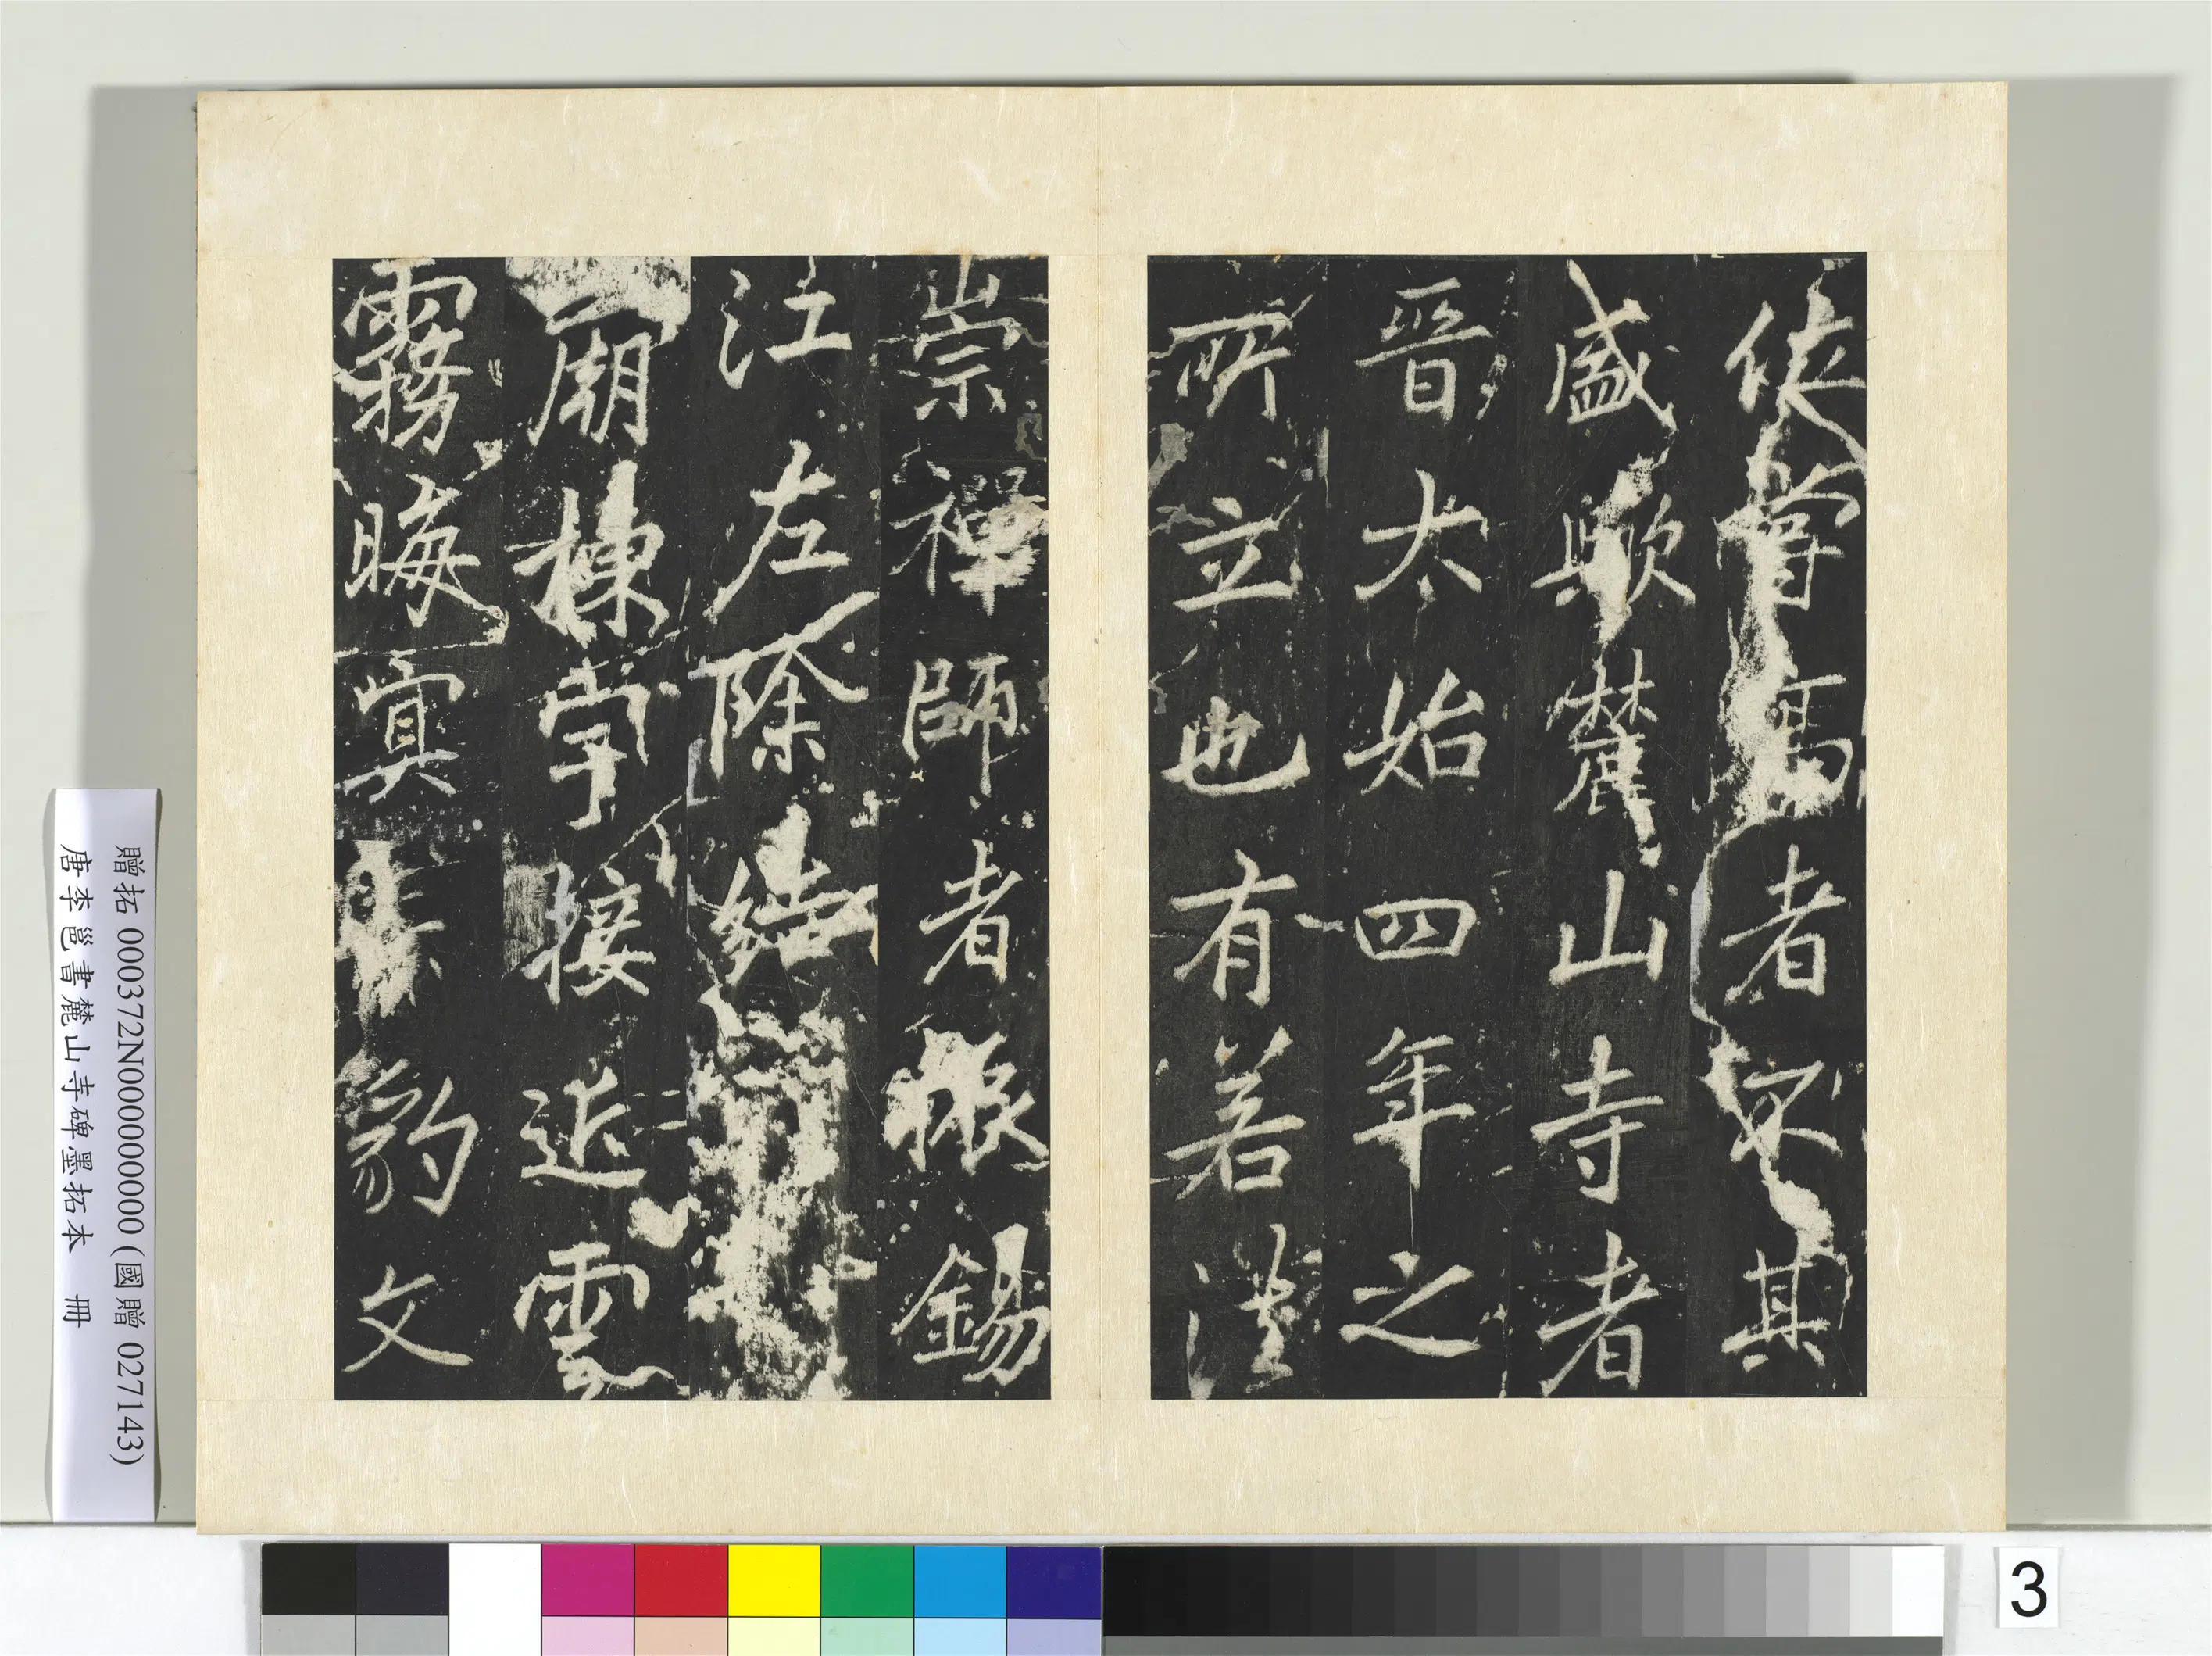 者不其
盛歟麓山寺者
晉太始四年之
所立也有若法
崇禪師者振錫
江左除結
廟棟宇接近雲
霧晦冥赤豹文
贈拓 000372N000000000 (國贈 027143)
唐李邕書麓山寺碑墨拓本 冊
3